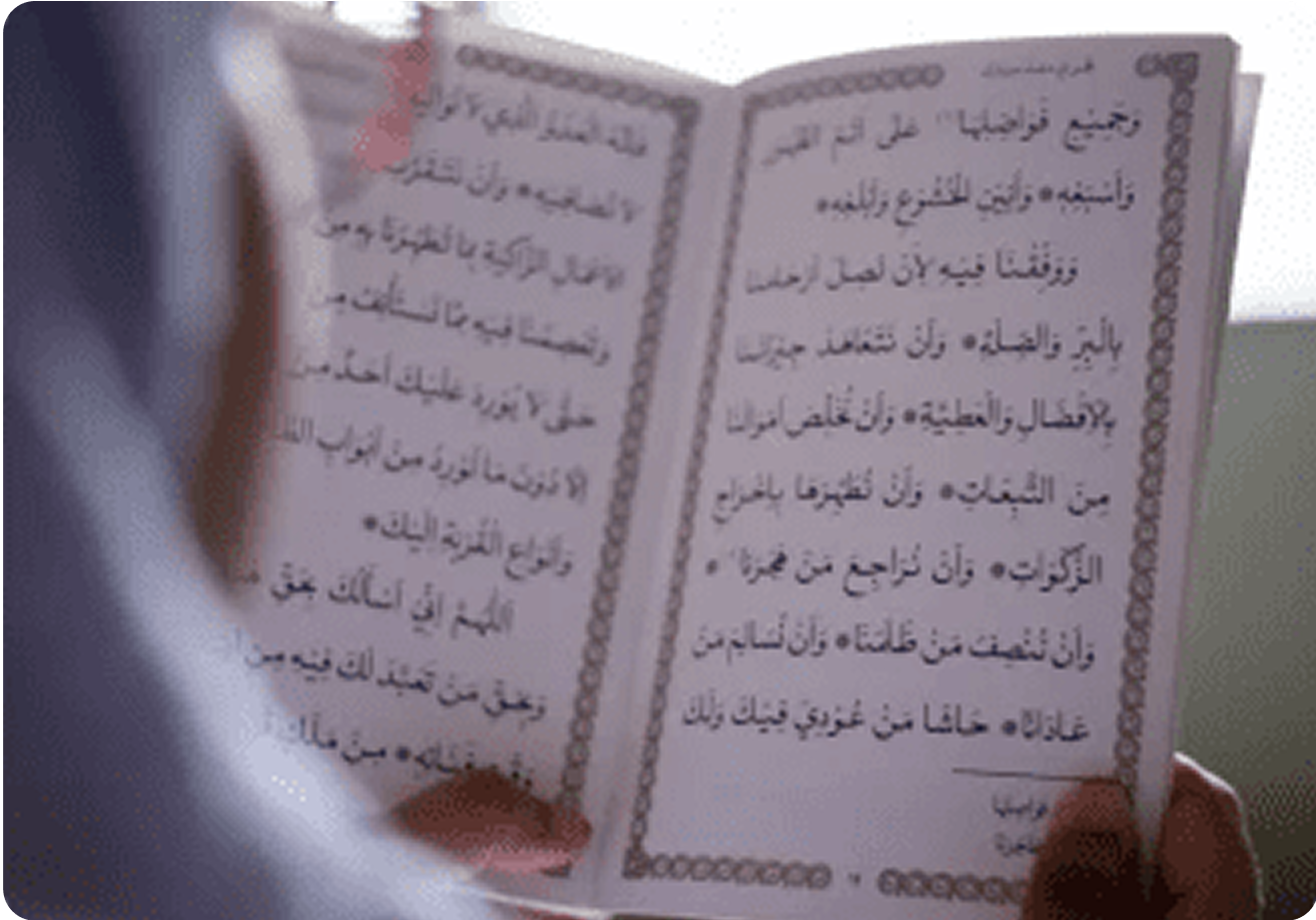 وَجَمِيْعِ فَوَاضِلِهَا عَلَى أَتَمِّ الطَّهُوْرِ
وَأَسْبَغِهِ* وَأَبْيَنِ الْخُشُوْعِ وَأَبْلَغِهِ*
وَوَفِّقْنَا فِيْهِ لِأَنْ نَصِلَ أَرْحَامَنَا
بِالْبِرِّ وَالصِّلَةِ* وَأَنْ نَتَعَاهَدَ جِيْرَانَنَا
بِالْإِفْضَالِ وَالْعَطِيَّةِ* وَأَنْ نُخَلِّصَ أَمْوَالَنَا
مِنَ التَّبِعَاتِ* وَأَنْ نُطَهِّرَهَا بِإِخْرَاجِ
الزَّكَوَاتِ* وَأَنْ نُرَاجِعَ مَنْ هَجَرَنَا *
وَأَنْ نُنْصِفَ مَنْ ظَلَمَنَا* وَأَنْ نُسَالِمَ مَنْ
عَادَانَا* حَاشَا مَنْ عُوْدِيَ فِيْكَ وَلَكَ
فواضلها
فَإِنَّهُ الْعَدُوُّ الَّذِي لَا نُوَالِيْهِ
لَا نُصَافِيْهِ* وَأَنْ نَتَقَرَّبَ
الْأَعْمَالِ الزَّاكِيَةِ بِمَا تُطَهِّرُنَا بِهِ مِنَ
وَتَعْصِمُنَا فِيْهِ مِمَّا نَسْتَأْنِفُ مِنَ
حَتَّى لَا يُوْرِدَ عَلَيْكَ أَحَدٌ مِنْ
إِلَّا دُوْنَ مَا نُوْرِدُ مِنْ أَبْوَابِ
وَأَنْوَاعِ الْقُرْبَةِ إِلَيْكَ*
اَللّٰهُمَّ إِنِّيْ أَسْأَلُكَ بِحَقِّ
وَبِحَقِّ مَنْ تَعَبَّدَ لَكَ فِيْهِ مِنَ
فَنَائِهِ* مِنْ مَلَكٍ